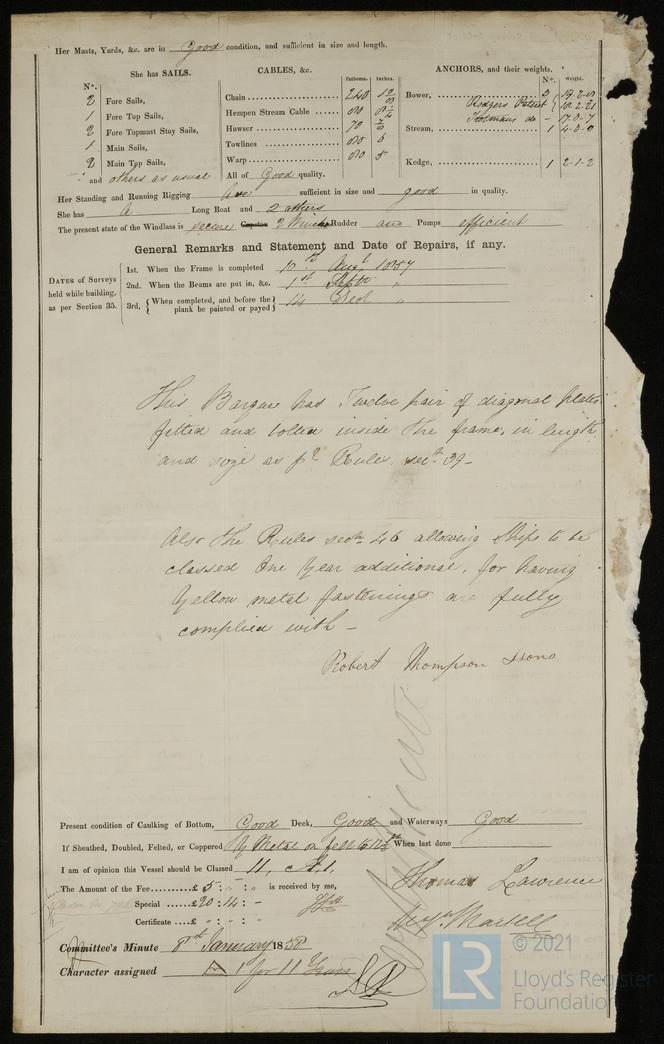 Her Masts, Yards, &c. are in Good condition, and sufficient in size and length.
She has SAILS.
CABLES, &c.
ANCHORS, and their weights.
Fathoms. Inches.
N°. Weight.
N°.
2 Fore Sails,
1 Fore Top Sails,
2 Fore Topmast Stay Sails,
1 Main Sails,
2 Main Top Sails,
and others as usual
Chain 240
Hempen Stream Cable
Hawser 70
Towlines 6
Warp 5
All of Good quality.
Bower, 3 19.2.0
Rodgers Patent 18.2.21
Stream, 1 4.0.0
Kedge, 1 2.1.2
Her Standing and Running Rigging Are sufficient in size and good in quality.
She has A Long Boat and 2 others
The present state of the Windlass is secure Capstan 2 Winches Rudder and Pumps efficient
General Remarks and Statement and Date of Repairs, if any.
DATES of Surveys held while building, as per Section 35.
1st. When the Frame is completed 10th Augt 1857
2nd. When the Beams are put in, &c. 1st Septr "
3rd. When completed, and before the plank be painted or payed 14 Decr "
This Barque has Twelve pair of diagonal plates
fitted and bolted inside the frame, in length
and size as pr Rule, sectn 39-
Also the Rules sectn 46 allowing Ships to be
classed One Year additional, for having
Yellow metal fastenings are fully
complied with -
Robert Thompson & Sons
Present condition of Caulking of Bottom, Good Deck, Good and Waterways Good
If Sheathed, Doubled, Felted, or Coppered Y Metal on felt to When last done
I am of opinion this Vessel should be Classed 11, A.1.
The Amount of the Fee......£ 5 : " : " is received by me,
Special .....£ 20 : 14 : -
Certificate ... £ " : " : "
Thomas Lawrence
Martell
Committee's Minute 8th January 1858
Character assigned A 1 for 11 Years
LR
© 2021
Lloyd's Register
Foundation